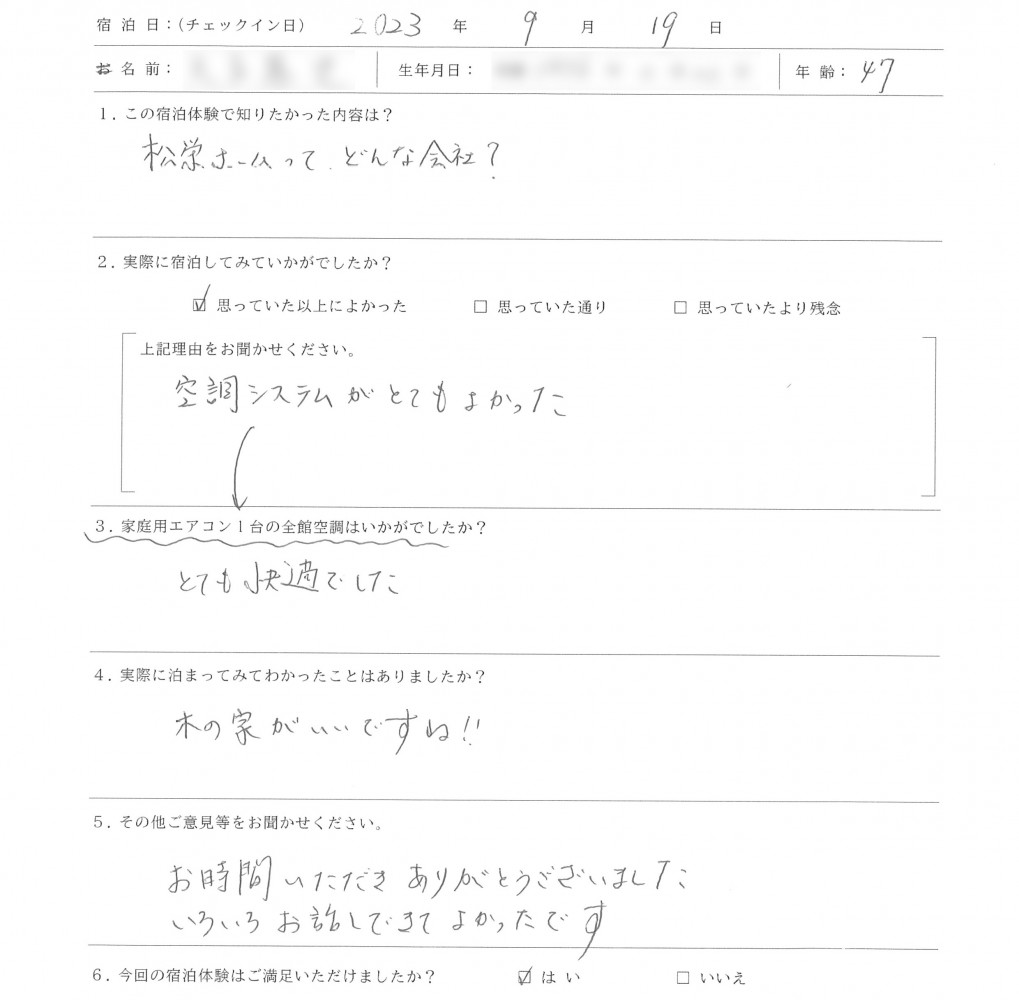 宿 泊 日：（チェックイン日） 2023 年 9 月 19 日
お 名 前： 生年月日： 年 齢： 47
1．この宿泊体験で知りたかった内容は？
松栄ホームって どんな会社？
2．実際に宿泊してみていかがでしたか？
☑ 思っていた以上によかった □ 思っていた通り □ 思っていたより残念
上記理由をお聞かせください。
空調システムがとてもよかった
3．家庭用エアコン1台の全館空調はいかがでしたか？
とても快適でした
4．実際に泊まってみてわかったことはありましたか？
木の家がいいですね!!
5．その他ご意見等をお聞かせください。
お時間いただき ありがとうございました
いろいろお話しできてよかったです
6．今回の宿泊体験はご満足いただけましたか？ ☑ は い □ いいえ